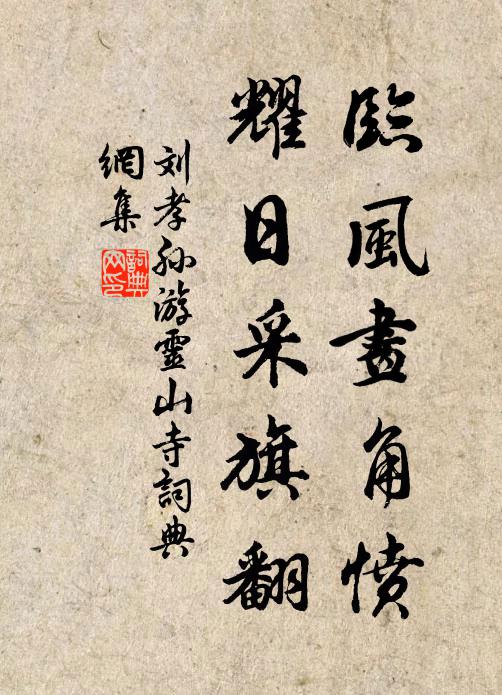 臨風畫角憤
耀日采旗翻
刘孝孙游靈山寺詞典
網集
詞典網印